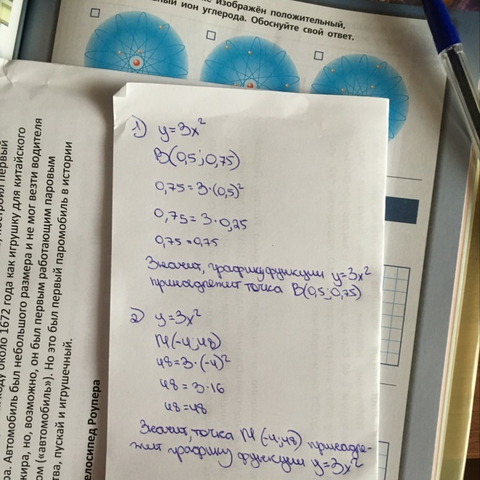 изображён положительный,
ный ион углерода. Обоснуйте свой ответ.
1) y=3x²
B(0,5; 0,75)
0,75=3·(0,5)²
0,75=3·0,25
0,75=0,75
Значит, графику функции y=3x²
принадлежит точка B(0,5; 0,75)
2) y=3x²
M(-4; 48)
48=3·(-4)²
48=3·16
48=48
Значит, точка M (-4; 48) принадле-
жит графику функции y=3x²
построил первый
оду около 1672 года как игрушку для китайского
ра. Автомобиль был небольшого размера и не мог везти водителя
жира, но, возможно, он был первым работающим паровым
ом («автомобиль»). Но это был первый паромобиль в истории
тва, пускай и игрушечный.
елосипед Роупера